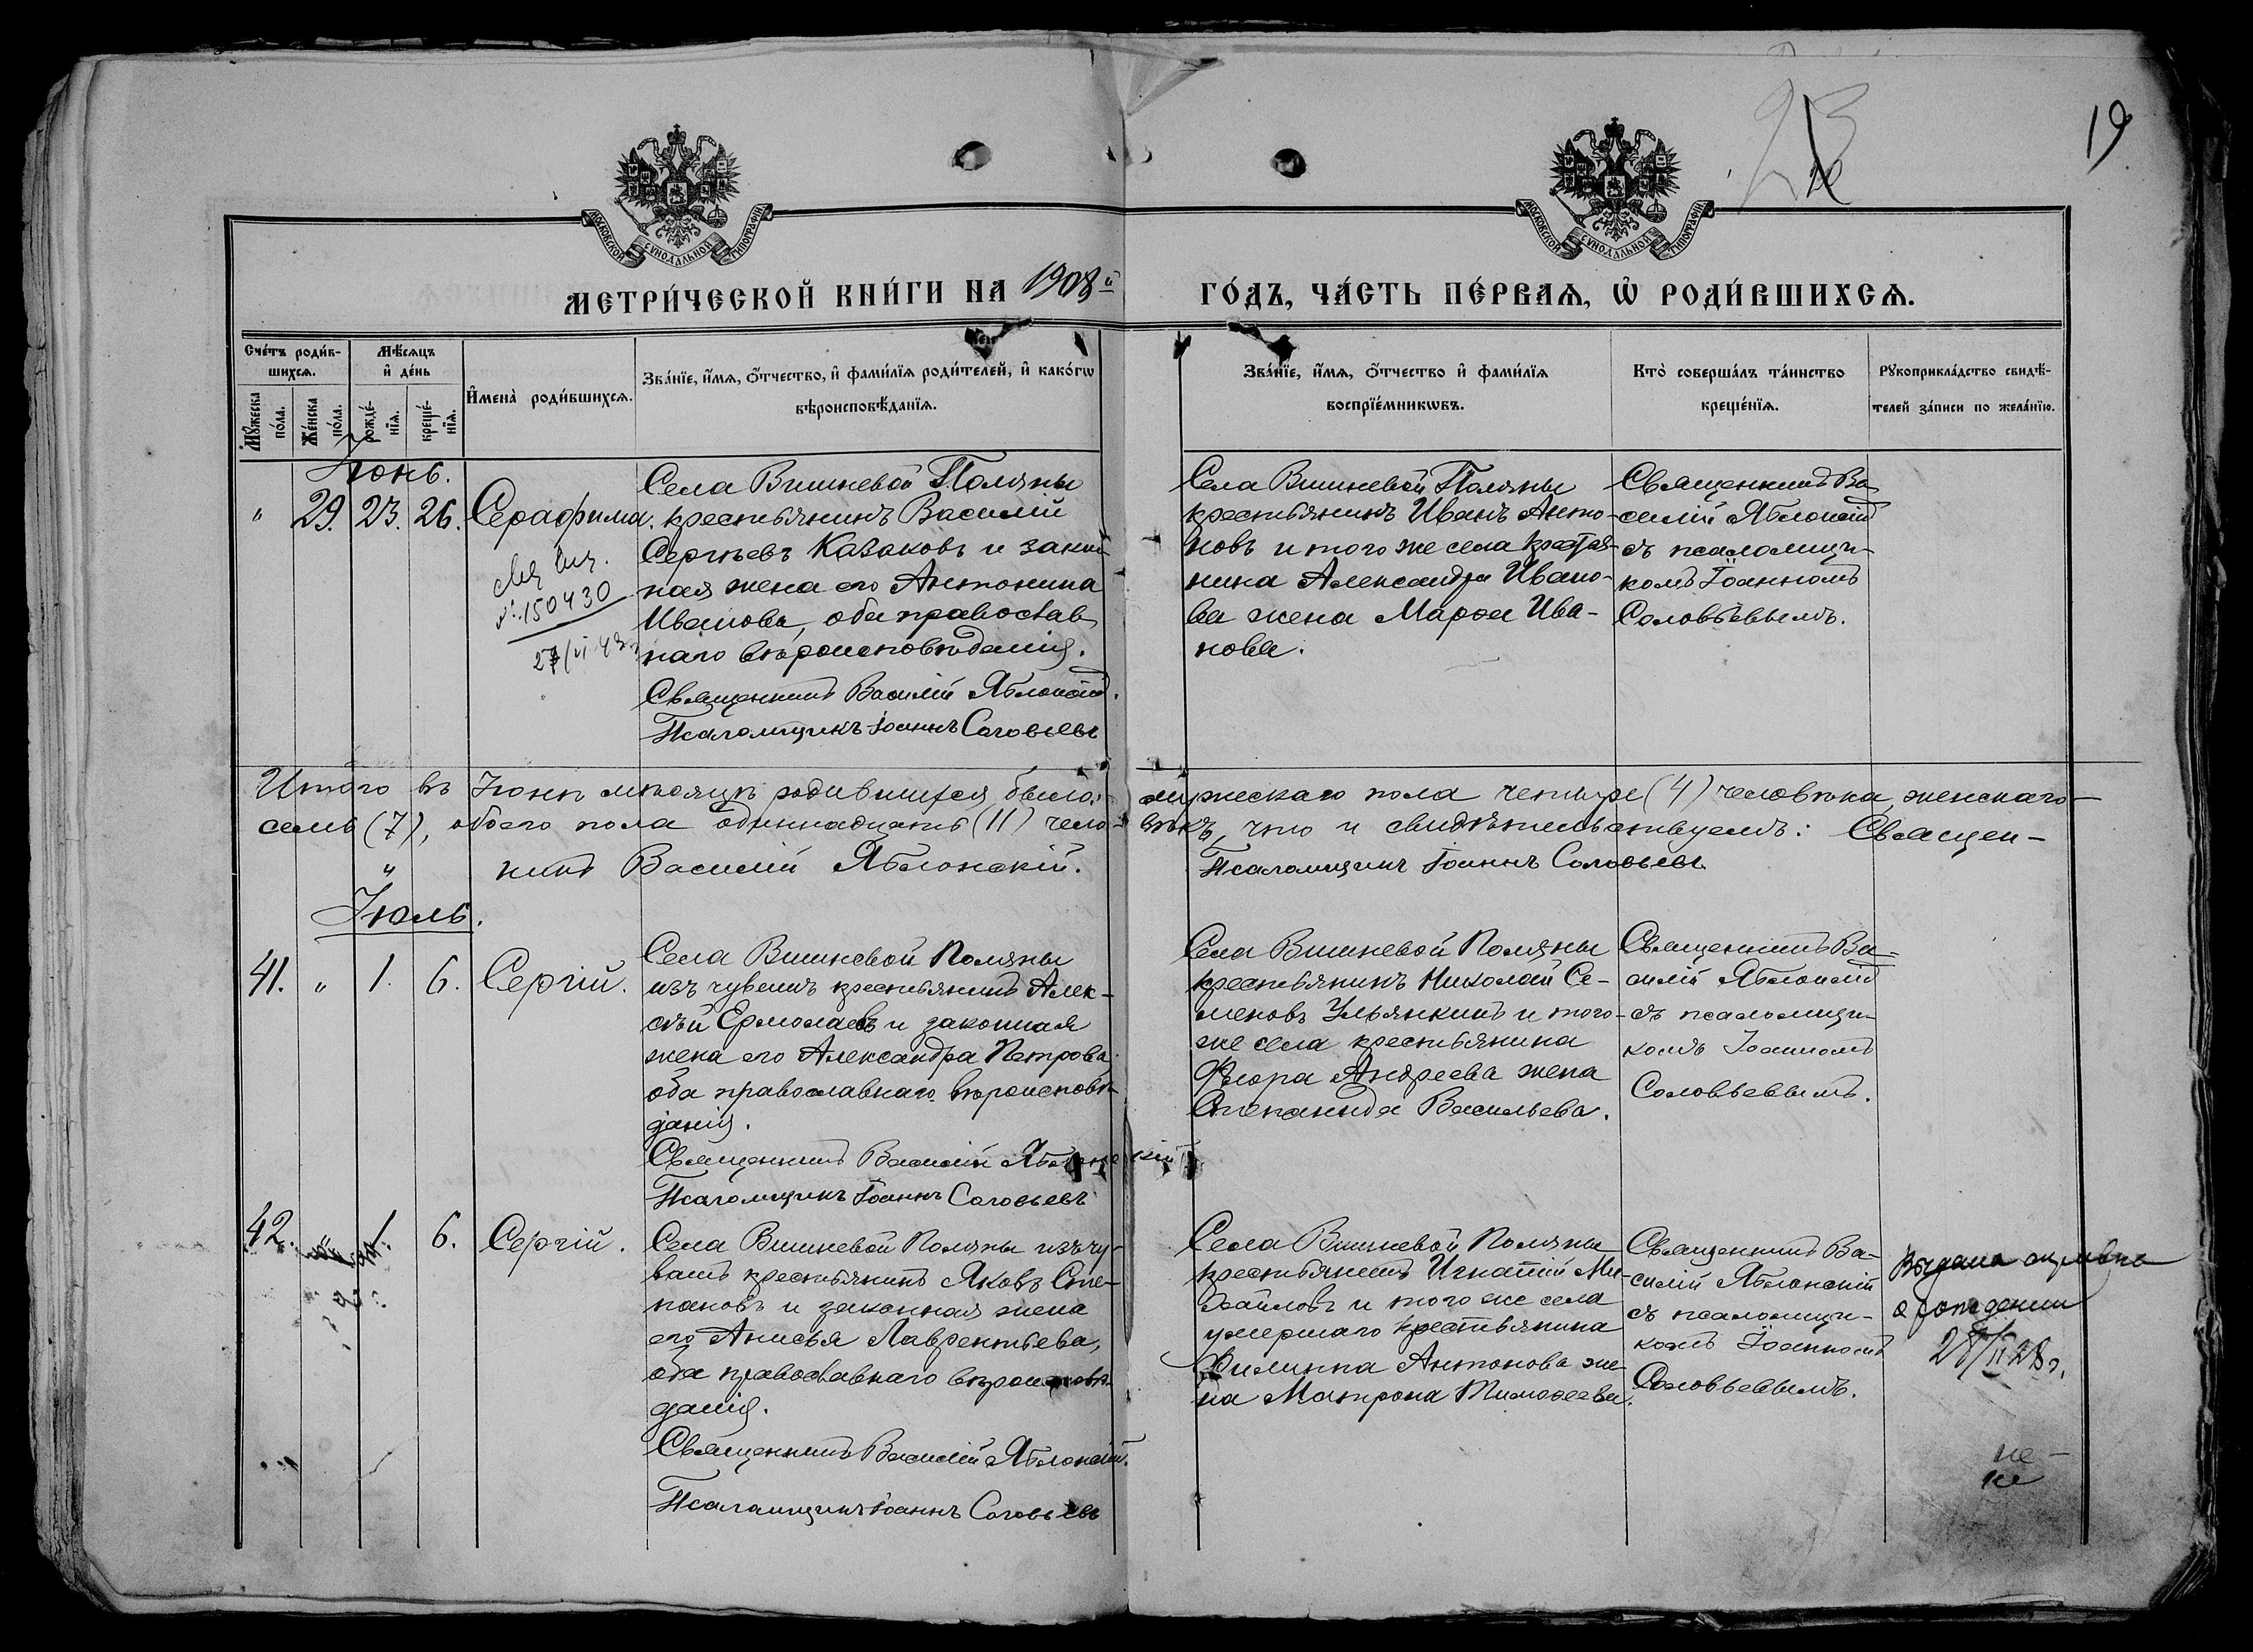 19
МОСКОВСКОЙ СѴНОДАЛЬНОЙ ТИПОГРАФІИ
МОСКОВСКОЙ СѴНОДАЛЬНОЙ ТИПОГРАФІИ
МЕТРИ́ЧЕСКОЙ КНИ́ГИ НА 1908й ГО́ДЪ, ЧА́СТЬ ПЕ́РВАѦ, Ѽ РОДИ́ВШИХСѦ.
Сче́тъ роди́в-
шихсѧ.
Мꙋ́жеска по́ла.
Же́нска по́ла.
Мѣ́сѧцъ
и҆ де́нь
рожде́-
нїѧ.
креще́-
нїѧ.
И҆мена̀ роди́вшихсѧ.
Зва́нїе, и҆́мѧ, ѻ҆́тчество, и҆ фами́лїѧ роди́телей, и҆ како́гѡ
вѣроисповѣ́данїѧ.
Зва́нїе, и҆́мѧ, ѻ҆́тчество и҆ фами́лїѧ
воспрїе́мникѡвъ.
Кто̀ соверша́лъ та́инство
креще́нїѧ.
Рꙋкоприкла́дство свидѣ́-
телей за́писи по жела́нїю.
Іюнь.
" 29. 23. 26. Серафима.
№ 150430
Села Вишневой Поляны
крестьянинъ Василій
Сергѣевъ Казаковъ и закон-
ная жена его Антонина
Иванова, оба православ
наго вѣроисповѣданія.
Священникъ Василій Яблонскій.
Псаломщикъ Іоаннъ Соловьевъ
Села Вишневой Поляны
крестьянинъ Иванъ Анто-
новъ и того же села крестья-
нина Александра Ивано-
ва жена Марѳа Ива-
нова.
Священникъ Ва-
силій Яблонскій
съ псаломщи-
комъ Іоанномъ
Соловьевымъ.
Итого въ Іюнѣ мѣсяцѣ родившихся было: мужескаго пола четыре (4) человѣка, женскаго
семь (7), обоего пола одиннадцать (11) чело-вѣкъ, что и свидѣтельствуемъ: Священ-
никъ Василій Яблонскій. Псаломщикъ Іоаннъ Соловьевъ
Іюль.
41. " 1. 6. Сергій.
Села Вишневой Поляны
изъ чувашъ крестьянинъ Алек-
сѣй Ермолаевъ и законная
жена его Александра Петрова,
оба православнаго вѣроисповѣ-
данія.
Священникъ Василій Яблонскій
Псаломщикъ Іоаннъ Соловьевъ
Села Вишневой Поляны
крестьянинъ Николай Се-
меновъ Ульянкинъ и того-
же села крестьянина
Флора Андреева жена
Степанида Васильева.
Священникъ Ва-
силій Яблонскій
съ псаломщи-
комъ Іоанномъ
Соловьевымъ.
42. " 1. 6. Сергій.
Села Вишневой Поляны изъ чу-
вашъ крестьянинъ Яковъ Сте-
пановъ и законная жена
его Анисья Лаврентьева,
оба православнаго вѣроисповѣ-
данія.
Священникъ Василій Яблонскій.
Псаломщикъ Іоаннъ Соловьевъ
Села Вишневой Поляны
крестьянинъ Игнатій Ми-
хайловъ и того же села
умершаго крестьянина
Филиппа Антонова же-
на Матрона Тимоѳеева.
Священникъ Ва-
силій Яблонскій
съ псаломщи-
комъ Іоанномъ
Соловьевымъ.
Выдана справка
о рождении
28/II 28 г.